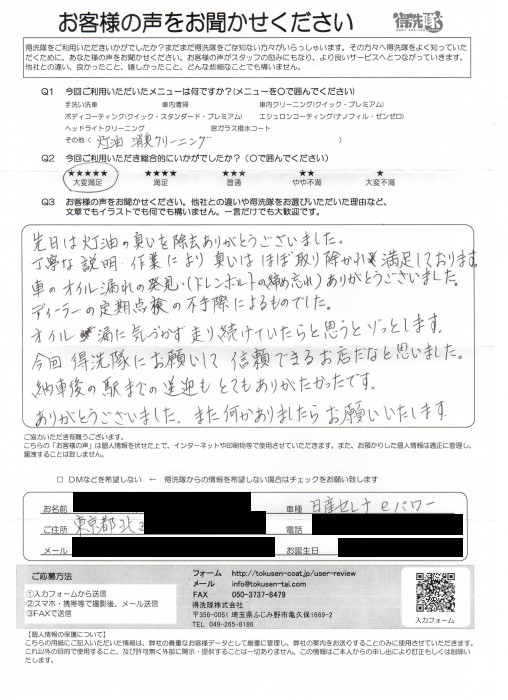 お客様の声をお聞かせください
得洗隊
得洗隊をご利用いただきいかがでしたか?まだまだ得洗隊をご存知ない方々がいらっしゃいます。その方々へ得洗隊をよく知っていた
だくために、あなた様の声をお聞かせください。お客様の声がスタッフの励みにもなり、より良いサービスへとつながっていきます。
他社との違い、良かったこと、嬉しかったこと、どんな些細なことでも構いません。
Q1 今回ご利用いただいたメニューは何ですか?(メニューを〇で囲んでください)
手洗い洗車 車内清掃 車内クリーニング(クイック・プレミアム)
ボディコーティング(クイック・スタンダード・プレミアム) エシュロンコーティング(ナノフィル・ゼンゼロ)
ヘッドライトクリーニング 窓ガラス撥水コート
その他( 灯油 消臭クリーニング )
Q2 今回ご利用いただき総合的にいかがでしたか?(〇で囲んでください)
★★★★★ ★★★★ ★★★ ★★ ★
大変満足 満足 普通 やや不満 大変不満
Q3 お客様の声をお聞かせください。他社との違いや得洗隊をお選びいただいた理由など、
文章でもイラストでも何でも構いません。一言だけでも大歓迎です。
先日は灯油の臭いを除去ありがとうございました。
丁寧な説明 作業により臭いはほぼ取り除かれ満足しております。
車のオイル漏れの発見(ドレンボルトの締め忘れ)ありがとうございました。
ディーラーの定期点検の不手際によるものでした。
オイル 漏に気づかず走り続けていたらと思うとゾッとします。
今回得洗隊にお願いして信頼できるお店だなと思いました。
納車後の駅までの送迎もとてもありがたかったです。
ありがとうございました。また何かありましたらお願いいたします
ご協力いただき有難うございます。
こちらの「お客様の声」は個人情報を伏せた上で、インターネットや印刷物等で使用させていただきます。また、お預かりした個人情報は適正に管理し、
漏洩することは致しません。
□ DMなどを希望しない ← 得洗隊からの情報を希望しない場合はチェックをお願い致します
お名前 車種 日産セレナ eパワー
ご住所 東京都北区 電話
メール お誕生日
ご応募方法
①入力フォームから送信
②スマホ・携帯等で撮影後、メール送信
③FAXで送信
フォーム http://tokusen-coat.jp/user-review
メール info@tokusen-tai.com
FAX 050-3737-8479
得洗隊株式会社
〒356-0051 埼玉県ふじみ野市亀久保1669-2
TEL 049-265-8186
入力フォーム
【個人情報の保護について】
こちらの用紙にご記入いただいた情報は、弊社の貴重なお客様データとして厳重に管理し、弊社の案内をお送りすることのみに使用させていただきます。
これ以外の目的で使用すること、及び許可無く外部に開示・提供することは一切ありません。この情報はご本人からの申し出により訂正もしくは削除い
たします。